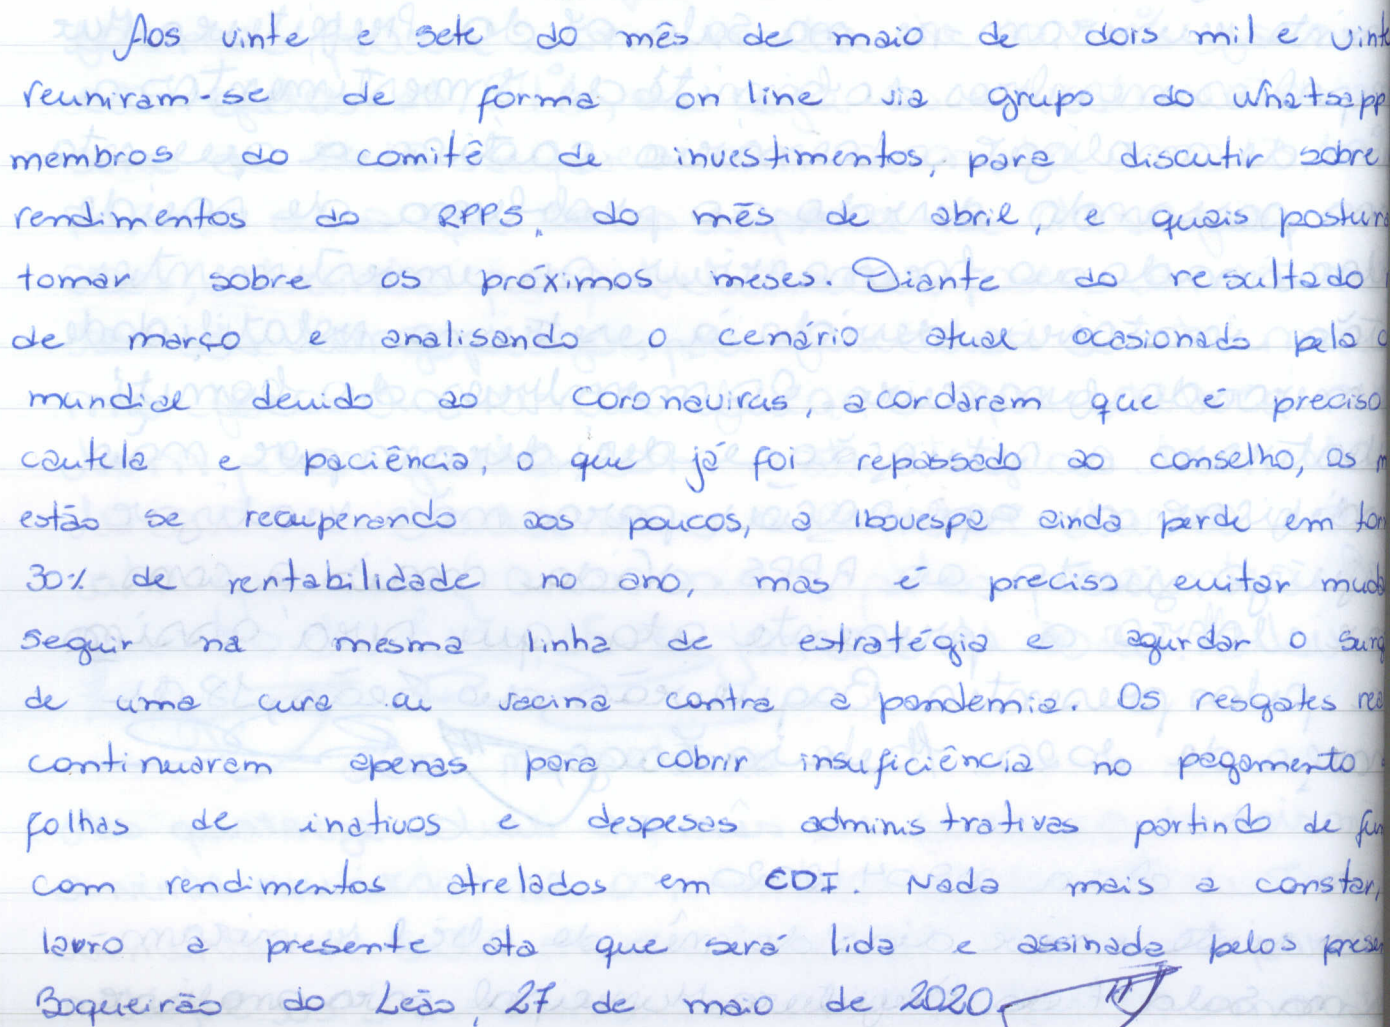 Aos vinte e sete do mês de maio de dois mil e vint
reuniram-se de forma on line via grupo do Whatsapp
membros do comitê de investimentos, para discutir sobre
rendimentos do RPPS, do mês de abril, e quais postur
tomar sobre os próximos meses. Diante do resultado
de março e analisando o cenário atual ocasionado pela c
mundial devido ao Coronavirus, acordaram que é preciso
cautela e paciência, o que já foi repassado ao conselho, os m
estão se recuperando aos poucos, a Ibovespa ainda perde em tor
30% de rentabilidade no ano, mas é preciso evitar muda
seguir na mesma linha de estratégia e agurdar o surg
de uma cura ou vacina contra a pandemia. Os resgates rea
continuaram apenas para cobrir insuficiência no pagamento
folhas de inativos e despesas administrativas partindo de fun
com rendimentos atrelados em CDI. Nada mais a constar,
lavro a presente ata que será lida e assinada pelos presen
Boqueirão do Leão, 27 de maio de 2020.